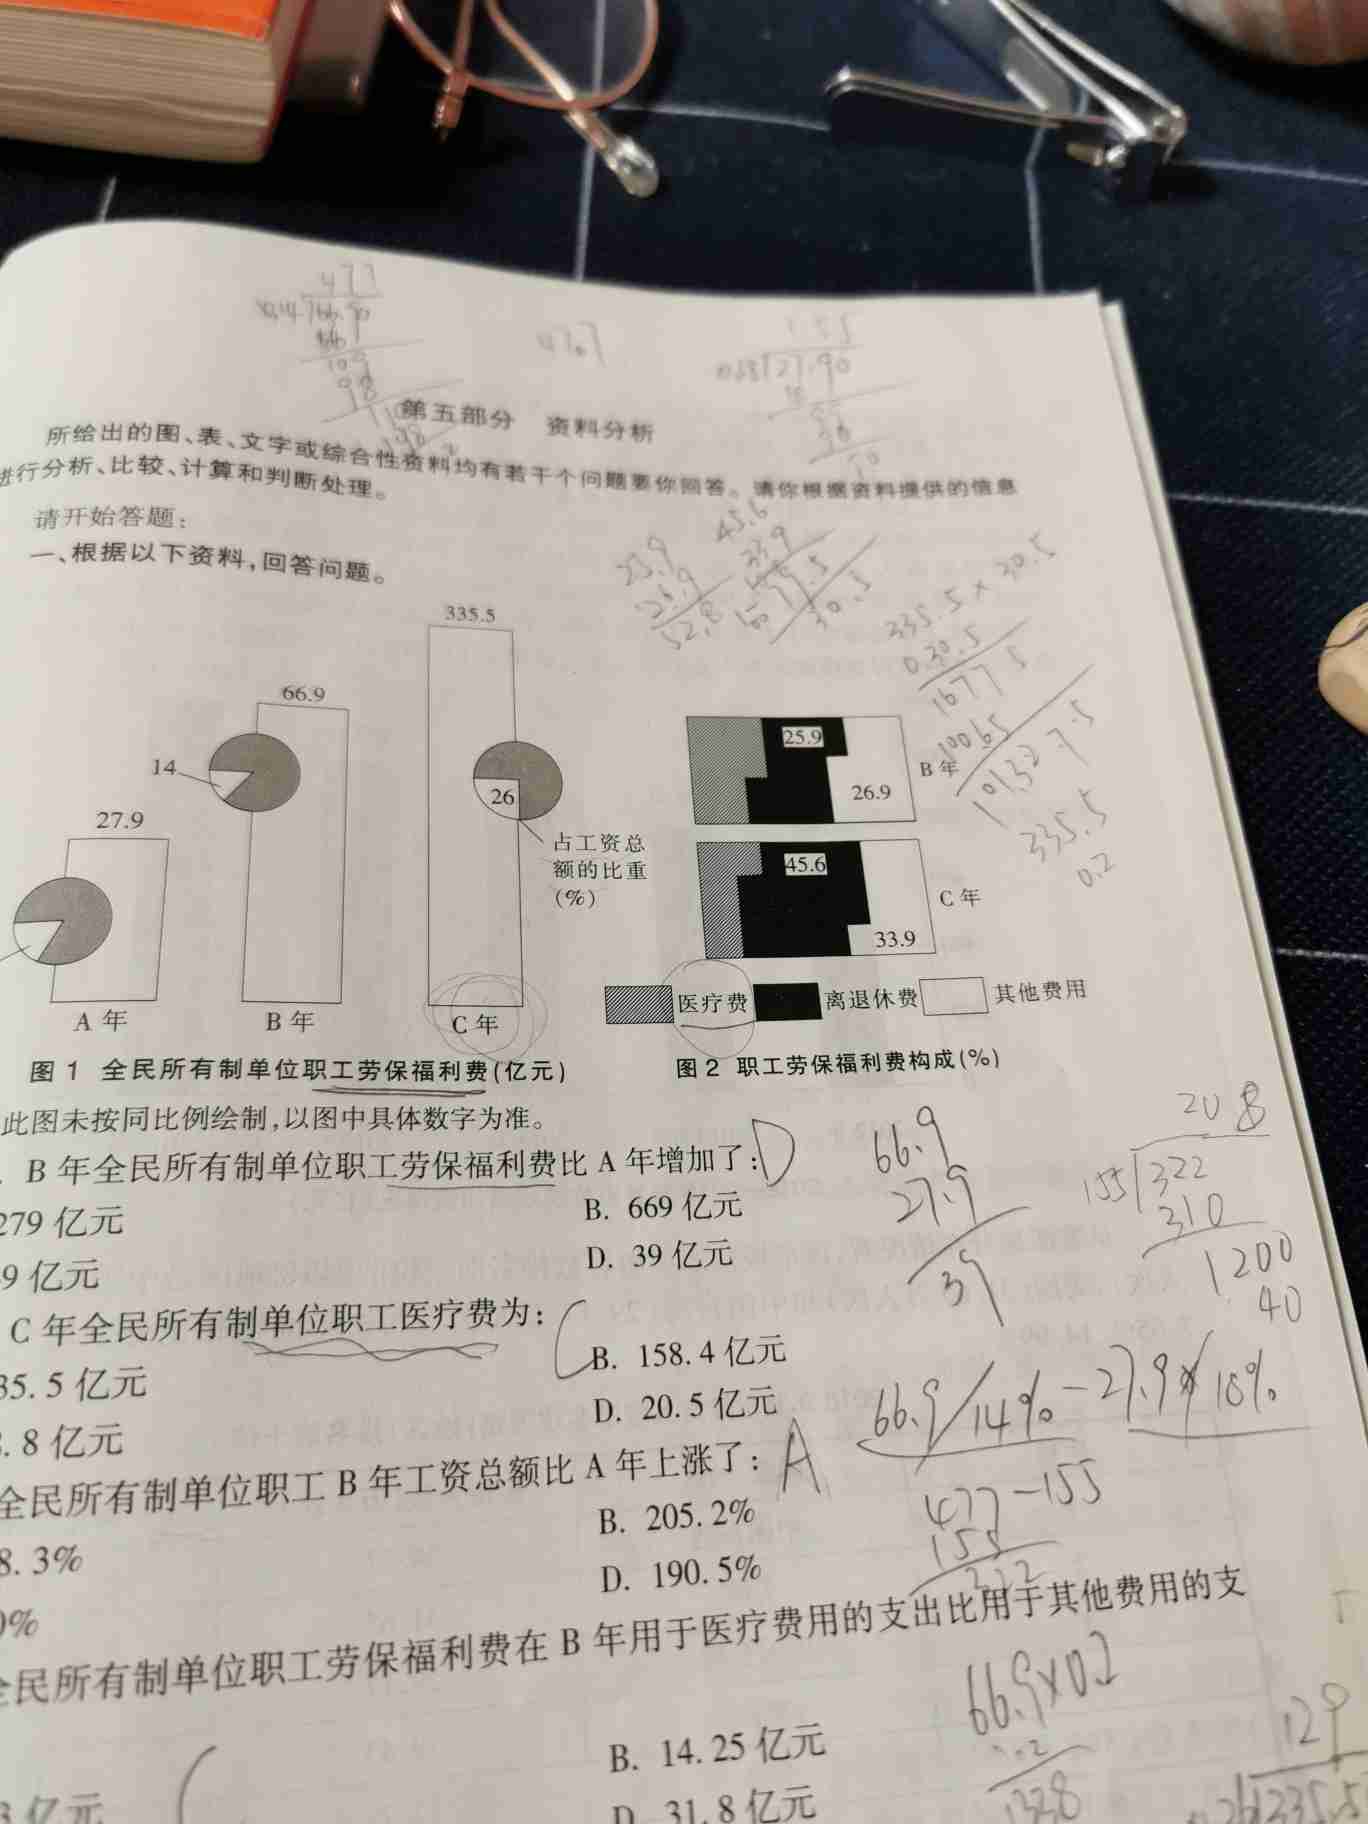 477
47.7
第五部分 资料分析
所给出的图、表、文字或综合性资料均有若干个问题要你回答。请你根据资料提供的信息
进行分析、比较、计算和判断处理。
请开始答题:
一、根据以下资料,回答问题。
45.6
33.9
79.5
30.5
335.5 × 30.5
0.30.5
1677.5
10065
335.5
0.2
335.5
66.9
14
27.9
26
占工资总
额的比重
(%)
A 年
B 年
C 年
25.9
26.9
B 年
45.6
33.9
C 年
医疗费
离退休费
其他费用
图 1 全民所有制单位职工劳保福利费(亿元)
图 2 职工劳保福利费构成(%)
此图未按同比例绘制,以图中具体数字为准。
B 年全民所有制单位职工劳保福利费比 A 年增加了: D
279 亿元
B. 669 亿元
9 亿元
D. 39 亿元
66.9
27.9
39
208
155 322
310
1200
40
C 年全民所有制单位职工医疗费为: C
35.5 亿元
B. 158.4 亿元
.8 亿元
D. 20.5 亿元
66.9/14% - 27.9/18%
477 - 155
155
322
全民所有制单位职工 B 年工资总额比 A 年上涨了: A
B. 205.2%
8.3%
D. 190.5%
0%
全民所有制单位职工劳保福利费在 B 年用于医疗费用的支出比用于其他费用的支
66.9×0.2
1338
129
B. 14.25 亿元
3 亿元
D. 31.8 亿元